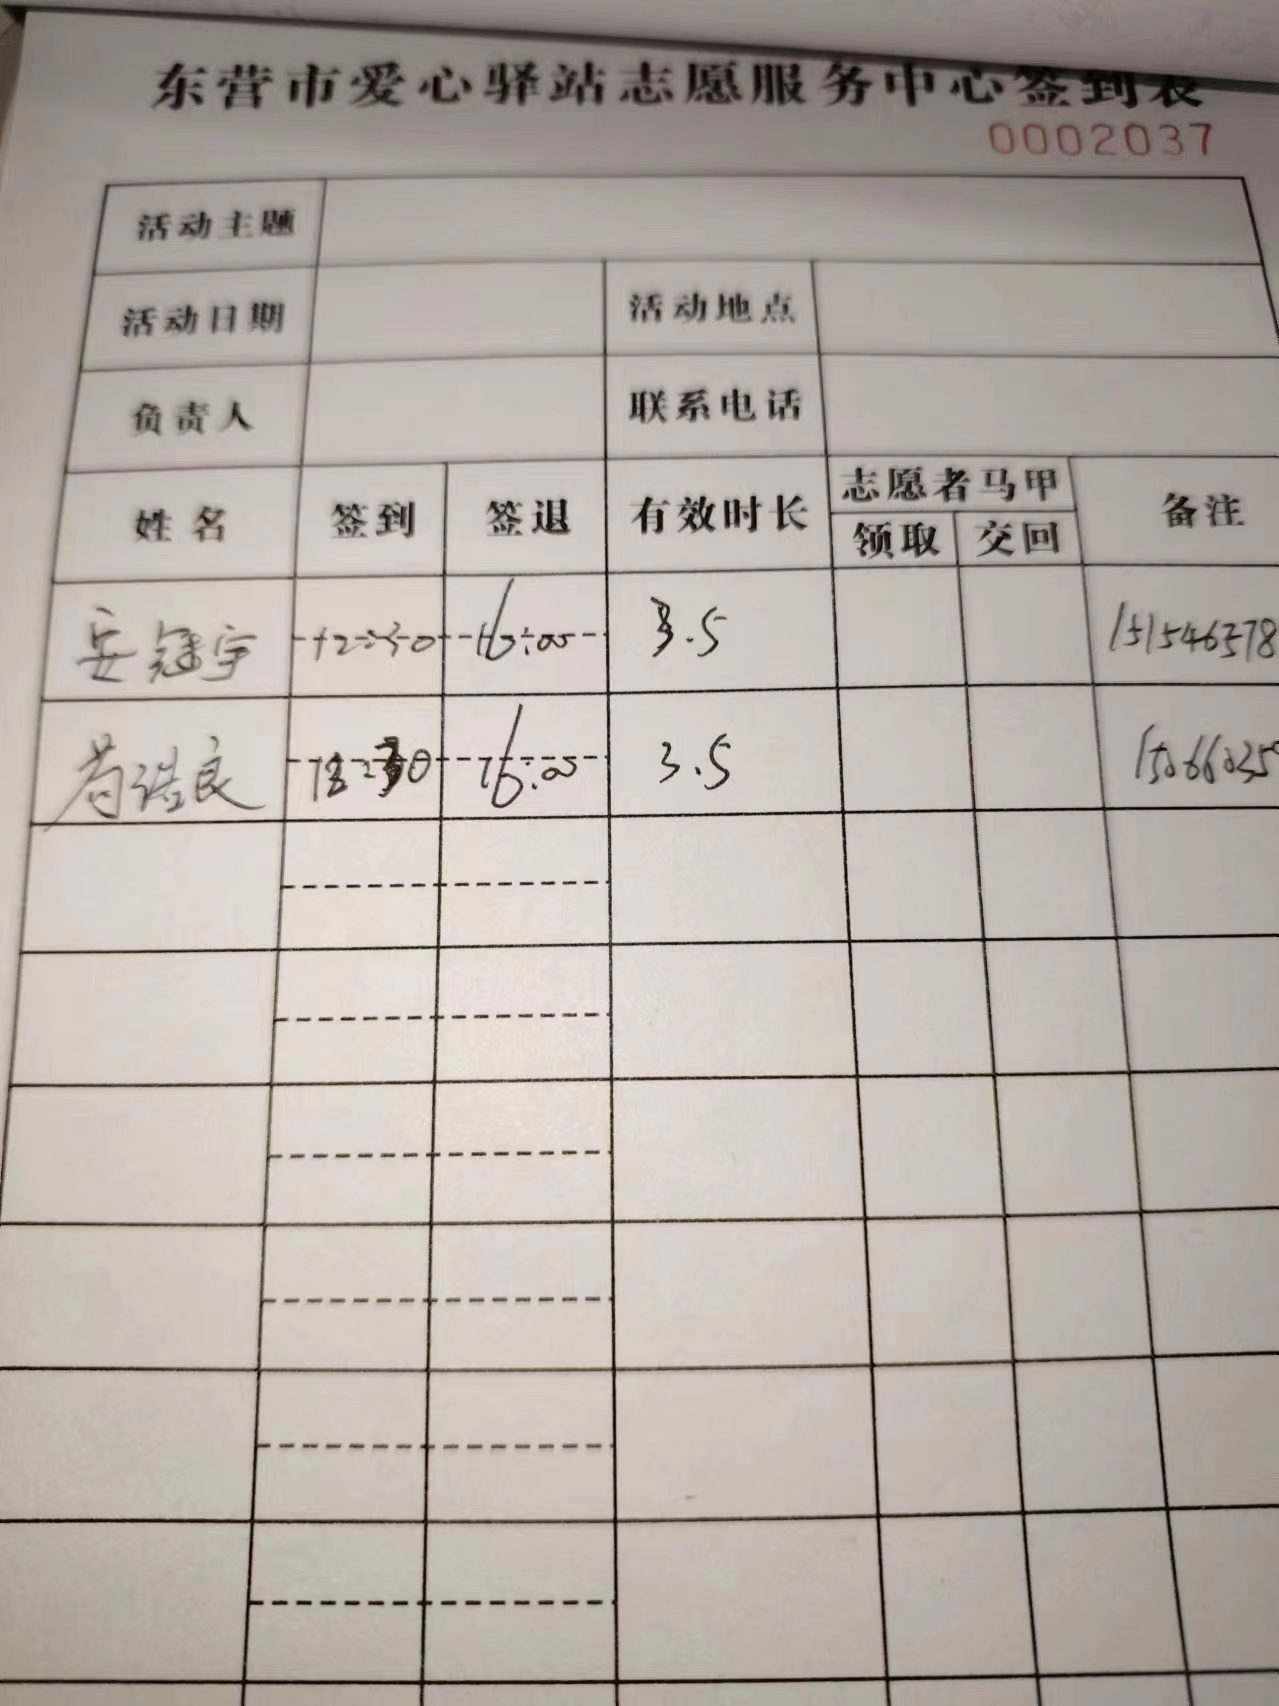 东营市爱心驿站志愿服务中心签到表
0002037
活动主题
活动日期 活动地点
负责人 联系电话
姓名 签到 签退 有效时长 志愿者马甲 备注
领取 交回
安冠宇 12:30 16:00 3.5 151546378
良 12:30 16:00 3.5 15066035